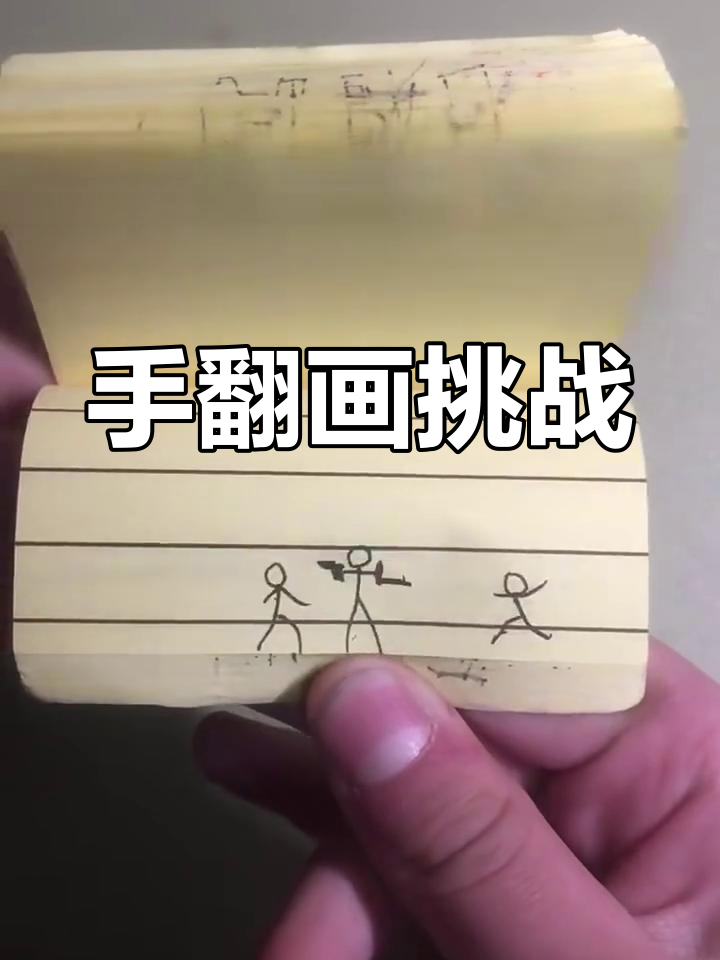 手翻画挑战